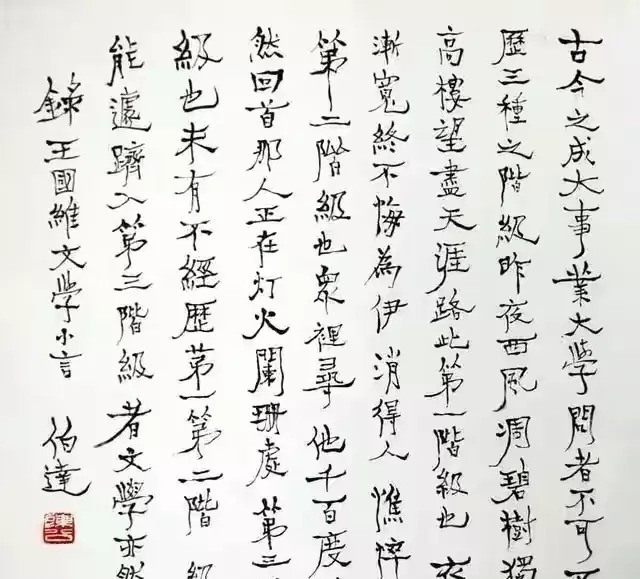 古今之成大事業大學問者不可
歷三種之階級昨夜西風凋碧樹獨
高樓望盡天涯路此第一階級也
漸寬終不悔為伊消得人憔悴
第二階級也衆裡尋他千百度
然回首那人正在灯火闌珊處第三
級也未有不經歷第一第二階級
能遽躋入第三階級者文學亦然
錄王國維文學小言 伯達